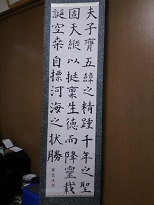 夫子膺五緯之精踵千年之聖
固天縱以挺稟生德而降靈載
誕空桑自標河海之狀勝